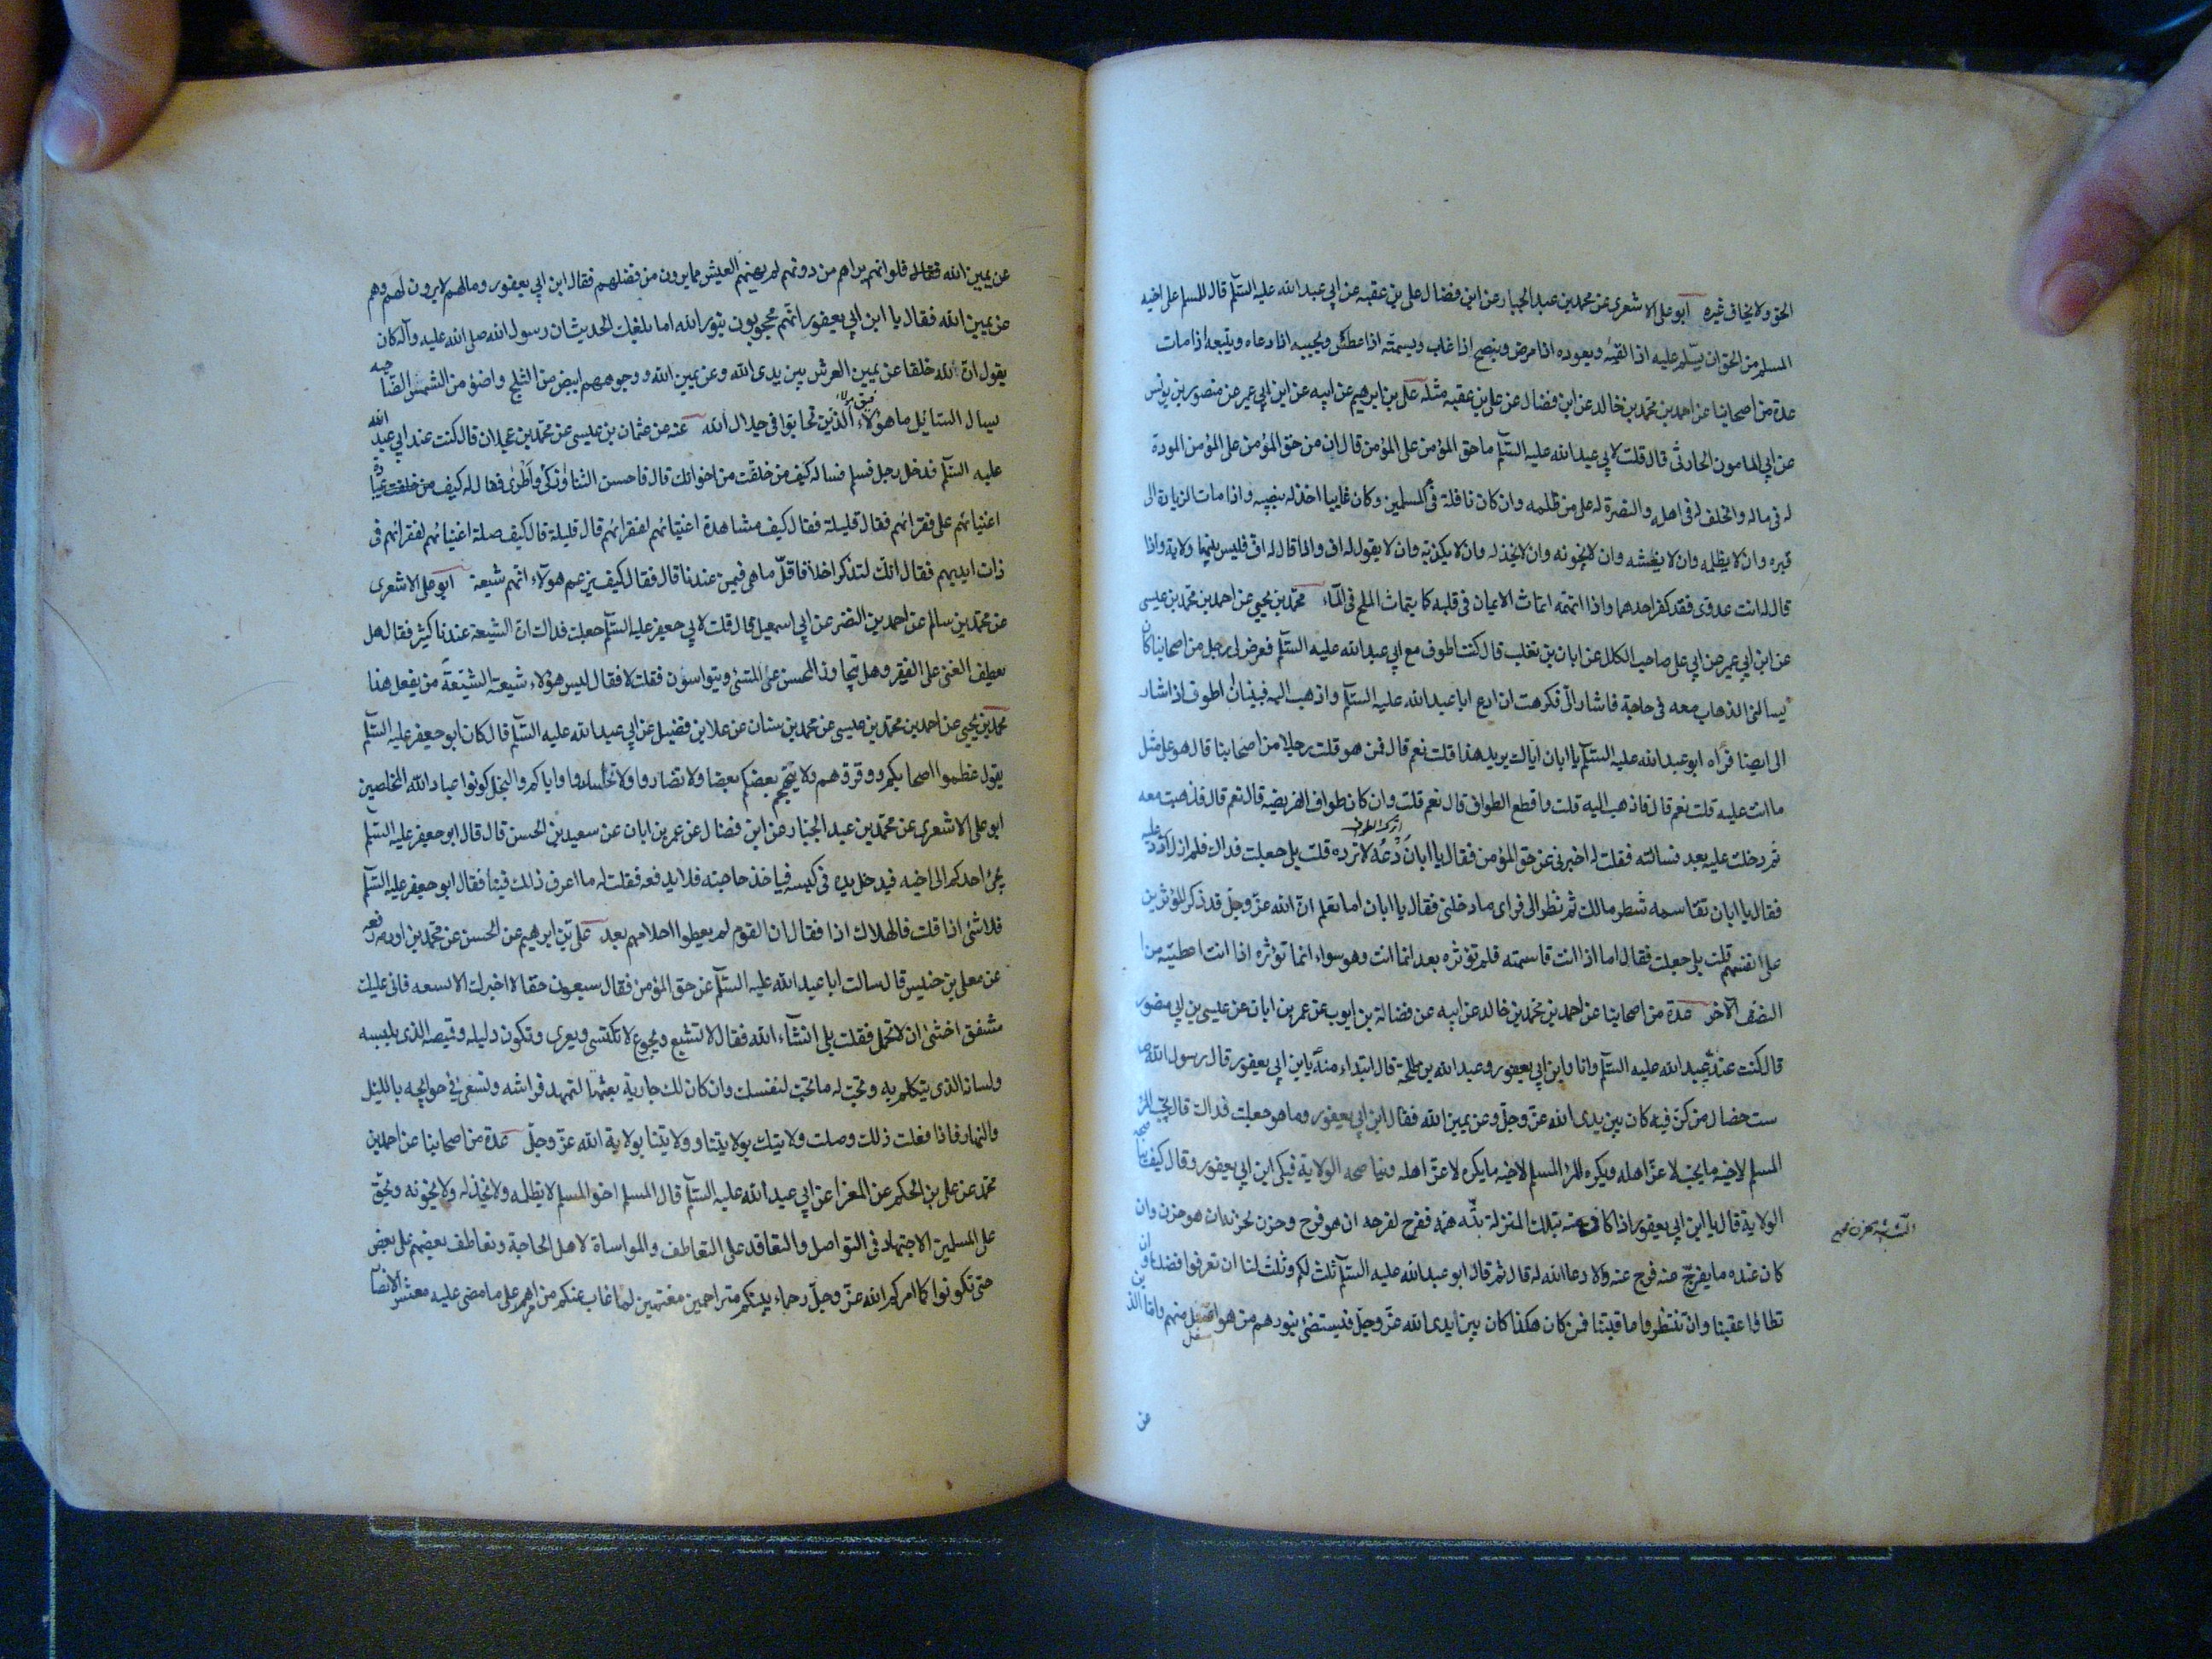 الحق ولا يخاف غيره ابو على الاشعرى عن محمد بن عبد الجبار عن ابن فضال على بن عقبه عن ابي عبد الله عليه السلم قال للمسلم على اخيه
المسلم من الحق ان يسلم عليه اذا لقيه ويعوده اذا مرض وينصح اذا غاب ويسمته اذا عطس ويجيبه اذا دعاه ويتبعه اذا مات
عدة من اصحابنا عن احمد بن محمد بن خالد عن ابن فضال عن على بن عقبه مثله على بن ابرهيم عن ابيه عن ابن ابي عمير عن منصور بن يونس
عن ابي المامون الحارثى قال قلت لابي عبد الله عليه السلم ما حق المؤمن على المؤمن قال ان من حق المؤمن على المؤمن المودة
له فى ماله والخلف له فى اهله والنصرة له على من ظلمه وان كان نافلة فى المسلمين وكان غايبا اخذ له بنصيبه واذا مات الزيارة الى
قبره وان لا يظلمه وان لا يغشه وان لا يخونه وان لا يخذله وان لا يكذبه وان لا يقول له اف واذا قال له اف فليس بينهما ولاية واذا
قال له انت عدوى فقد كفر احدهما واذا اتهمه انماث الايمان فى قلبه كما ينماث الملح فى المآء محمد بن يحيى عن احمد بن محمد بن عيسى
عن ابن ابي عمير عن ابي على صاحب الكلل عن ابان بن تغلب قال كنت اطوف مع ابي عبد الله عليه السلم فعرض لى رجل من اصحابنا كان
يسالنى الذهاب معه فى حاجة فاشار الى فكرهت ان ادع ابا عبد الله عليه السلم واذهب اليه فبينا انا اطوف اذ اشار
الى ايضا فرآه ابو عبد الله عليه السلم يا ابان اياك يريد هذا قلت نعم قال فمن هو قلت رجل من اصحابنا قال هو على مثل
ما انت عليه قلت نعم قال فاذهب اليه قلت واقطع الطواف قال نعم قلت وان كان طواف الفريضه قال نعم قال فذهبت معه
ثم دخلت عليه بعد فسالته فقلت له اخبرنى عن حق المؤمن فقال يا ابان دعه لا ترده قلت بلى جعلت فداك فلم ازل اردد عليه
فقال يا ابان تقاسمه شطر مالك ثم نظر الى فراى ما دخلنى فقال يا ابان اما تعلم ان الله عز وجل قد ذكر المؤثرين
على انفسهم قلت بلى جعلت فقال اما اذا انت قاسمته فلم تؤثره بعد انما انت وهو سواء انما تؤثره اذا انت اعطيته من
النصف الآخر عدة من اصحابنا عن احمد بن محمد بن خالد عن ابيه عن فضالة بن ايوب عن عمر بن ابان عن عيسى بن ابي منصور
قال كنت عند ابي عبد الله عليه السلم وانا وابن ابي يعفور وعبد الله بن طلحة قال ابتداء منه يا بن ابي يعفور قال رسول الله ص
ست خصال من كن فيه كان بين يدى الله عز وجل وعن يمين الله فقال ابن ابي يعفور وما هو جعلت فداك قال يحب المرء
المسلم لاخيه ما يحب لا عز اهله ويكره المرء المسلم لاخيه ما يكره لا عز اهله ويناصحه الولاية فبكى ابن ابي يعفور وقال كيف يناصحه
الولاية قال يا ابن ابي يعفور اذا كان منه بتلك المنزلة بثه همه ففرح لفرحه ان هو فرح وحزن لحزنه ان هو حزن وان
كان عنده ما يفرج عنه فرج عنه والا دعا الله له قال ثم قال ابو عبد الله عليه السلم ثلث لكم وثلث لنا ان تعرفوا فضلنا وان
تطاؤا عقبنا وان تنتظروا عاقبتنا فمن كان هكذا كان بين ايدى الله عز وجل فيستضئ بنورهم من هو اسفل منهم واما الذين
عن
عن يمين الله فقال فلو انهم يراهم من دونهم لم يهنهم العيش مما يرون من فضلهم فقال ابن ابي يعفور وما لهم لا يرون لهم وهم
عن يمين الله فقال يا ابن ابي يعفور انهم محجوبون بنور الله اما بلغك الحديث ان رسول الله صلى الله عليه وآله كان
يقول ان لله خلقا عن يمين العرش بين يدى الله وعن يمين الله ووجوههم ابيض من الثلج واضؤ من الشمس الضاحيه
يسال السائل ما هؤلاء الذين تحابوا فى جلال الله عنه عن عثمان بن عيسى عن محمد بن عجلان قال كنت عند ابي عبد الله
عليه السلم فدخل رجل فسلم فساله كيف من خلفت من اخوانك قال فاحسن الثنا وزكى واطرى فقال له كيف من خلفت عيادة
اغنيائهم على فقرائهم فقال قليلة فقال كيف مشاهدة اغنيائهم لفقرائهم قال قليلة قال كيف صلة اغنيائهم لفقرائهم فى
ذات ايديهم فقال انك لتذكر اخلاقا قل ما هى فيمن عندنا قال فقال كيف يزعم هولآء انهم شيعة ابو على الاشعرى
عن محمد بن سالم عن احمد بن النضر عن ابي اسمعيل قال قلت لابي جعفر عليه السلم جعلت فداك ان الشيعة عندنا كثير فقال هل
يعطف الغنى على الفقير وهل يتجاوز المحسن عن المسئ ويتواسون فقلت لا فقال ليس هؤلاء شيعة الشيعة من يفعل هذا
محمد بن يحيى عن احمد بن محمد بن عيسى عن محمد بن سنان عن علا بن فضيل عن ابي عبد الله عليه السلم قال كان ابو جعفر عليه السلم
يقول عظموا اصحابكم ووقروهم ولا يتهجم بعضكم بعضا ولا تضاروا ولا تحاسدوا واياكم والبخل كونوا عباد الله المخلصين
ابو على الاشعرى عن محمد بن عبد الجبار عن ابن فضال عن عمر بن ابان عن سعيد بن الحسن قال قال ابو جعفر عليه السلم
يجئ احدكم الى اخيه فيدخل يده فى كيسه فياخذ حاجته فلا يدفعه فقلت له ما اعرف ذلك فينا فقال ابو جعفر عليه السلم
فلا شئ اذا قلت فالهلاك اذا فقال ان القوم لم يعطوا احلامهم بعد على بن ابرهيم عن الحسن عن محمد بن اورمه رفعه
عن معلى بن خنيس قال سالت ابا عبد الله عليه السلم عن حق المؤمن فقال سبعون حقا لا اخبرك الا بسبعه فانى عليك
مشفق اخشى ان لا تحمل فقلت بلى انشاء الله فقال لا تشبع ويجوع لا تكتسى ويعرى وتكون دليله وقميصه الذى يلبسه
ولسانه الذى يتكلم به وتحب له ما تحب لنفسك وان كان لك جارية بعثتها لتمهد فراشه وتسعى فى حوايجه بالليل
والنهار فاذا فعلت ذلك وصلت ولايتك بولايتنا وولايتنا بولاية الله عز وجل عدة من اصحابنا عن احمد بن
محمد عن على بن الحكم عن المعزا عن ابي عبد الله عليه السلم قال المسلم اخو المسلم لا يظلمه ولا يخذله ولا يخونه ويحق
على المسلمين الاجتهاد فى التواصل والتعاقد على التعاطف والمواساة لاهل الحاجة وتعاطف بعضهم على بعض
حتى تكونوا كما امركم الله عز وجل رحماء بينكم متراحمين مغتمين لما غاب عنكم من امرهم على ما مضى عليه معشر الانصار